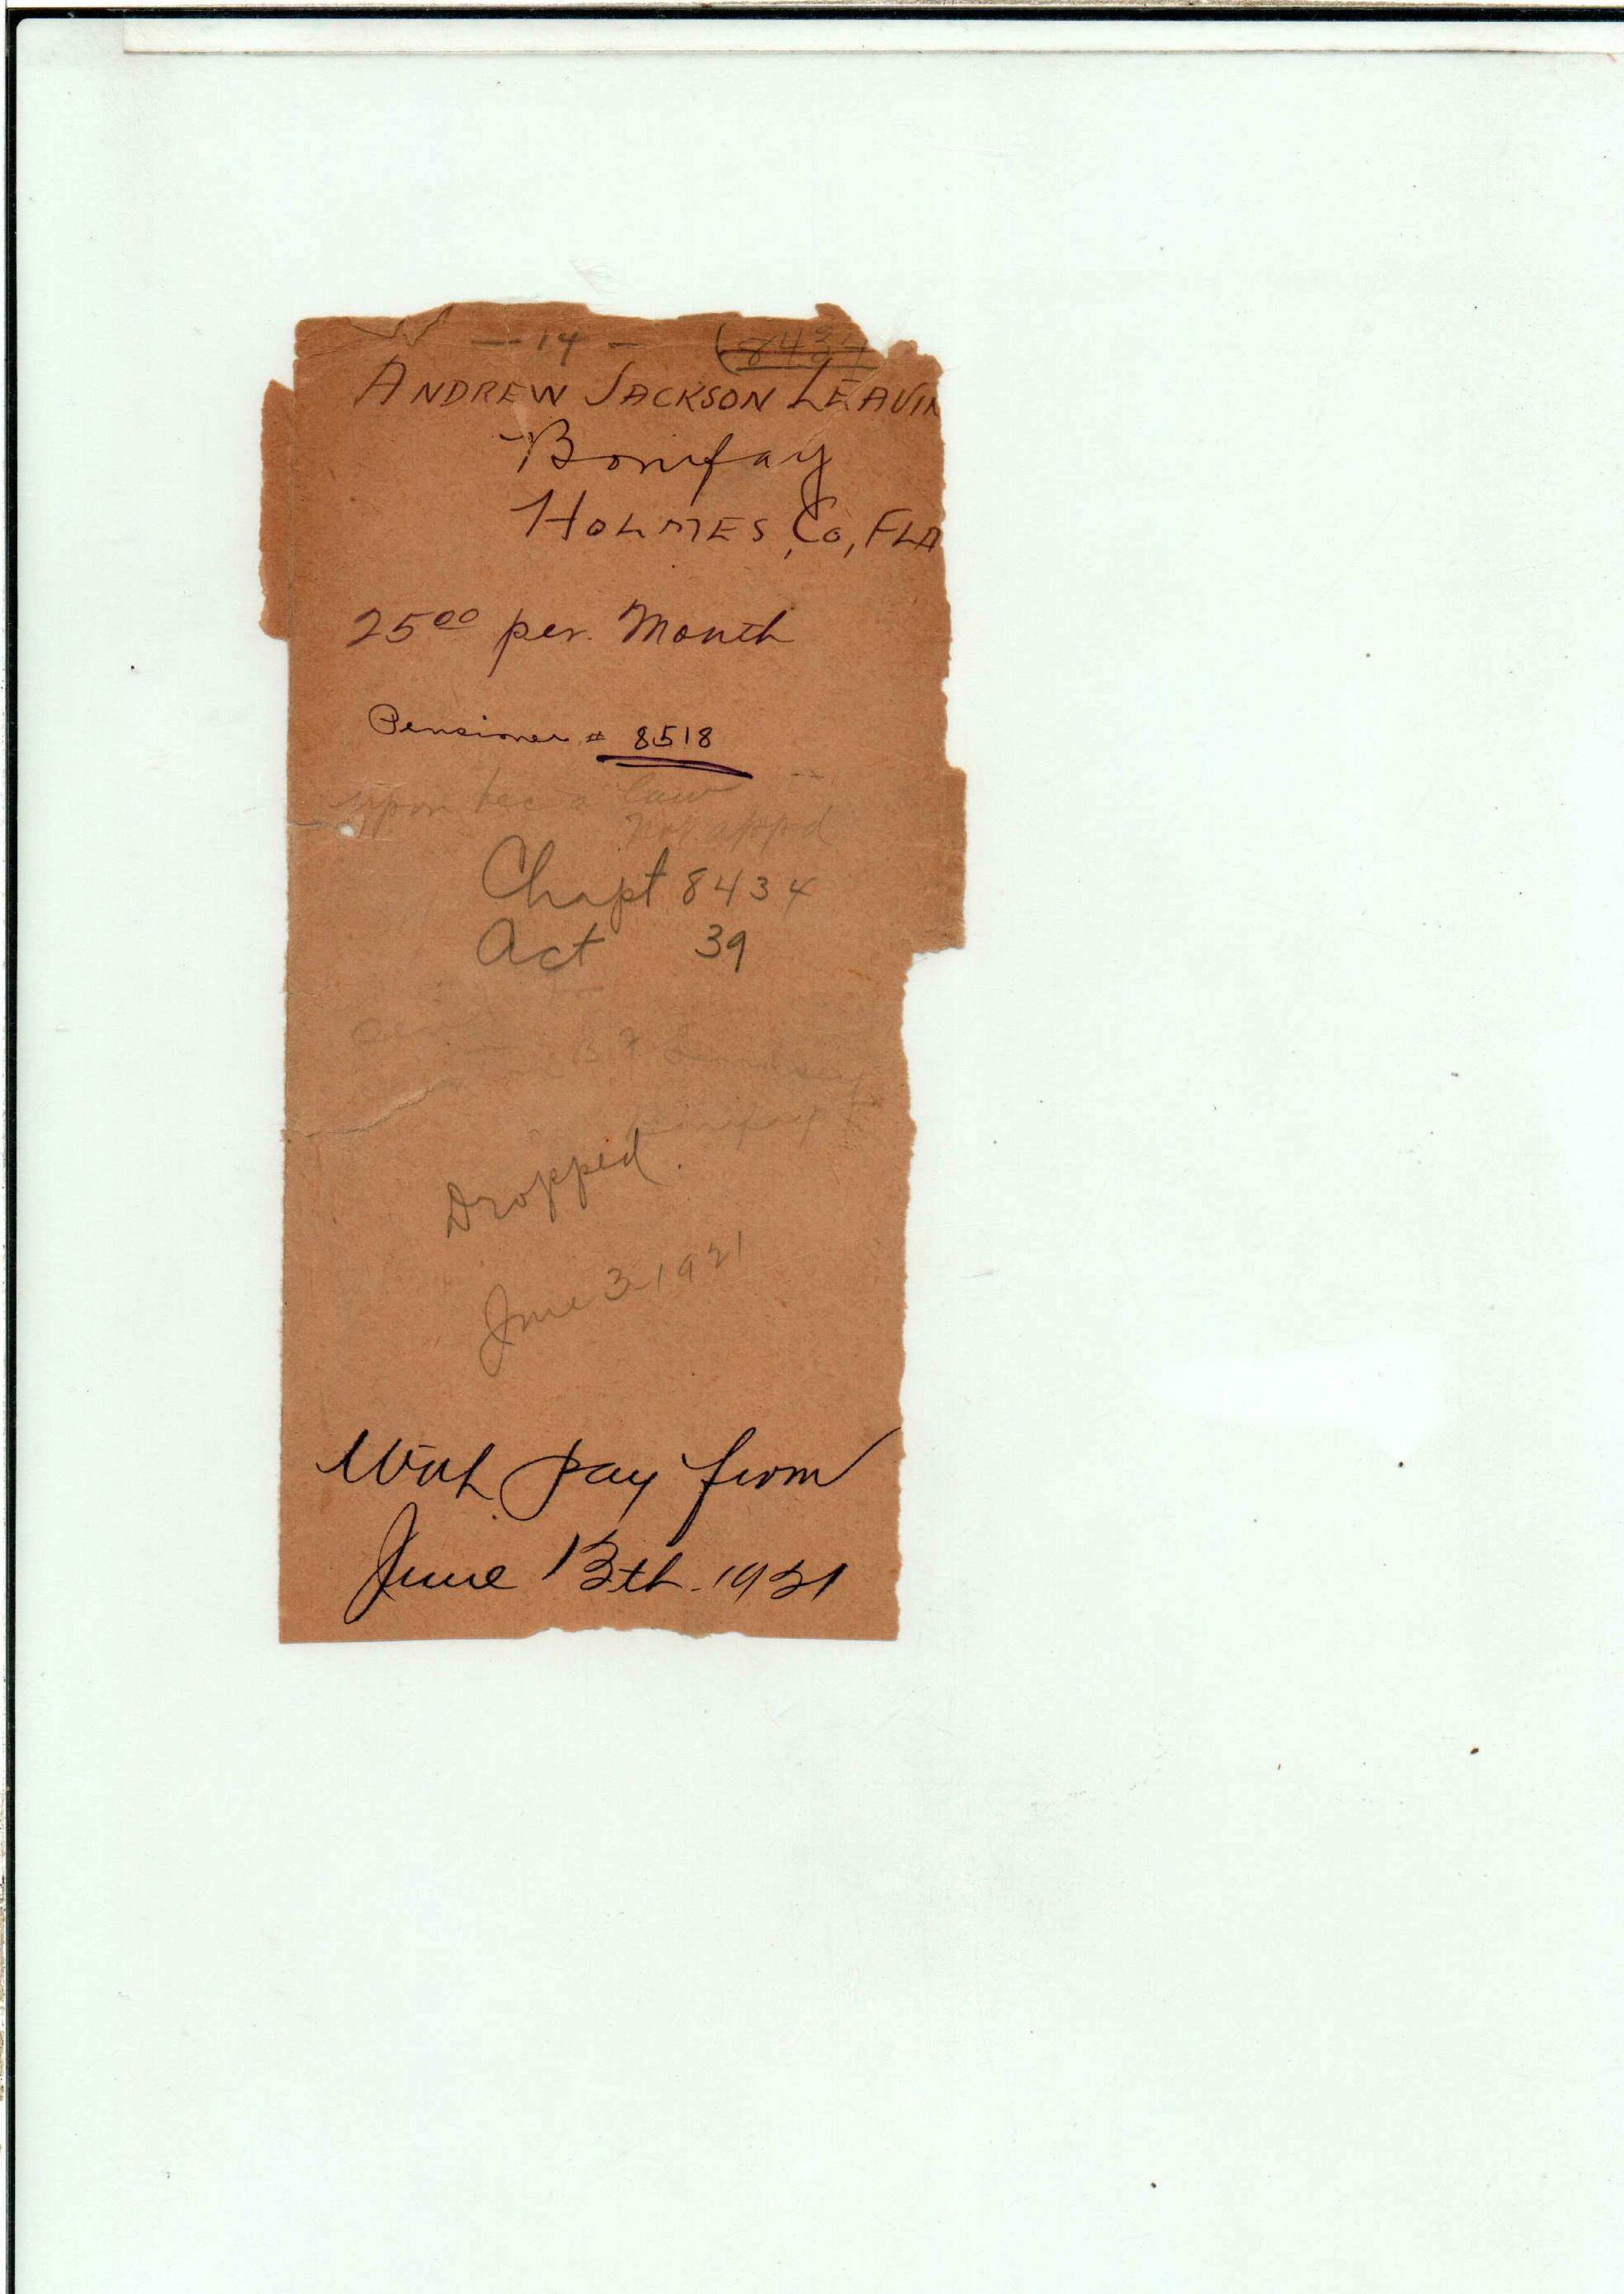 — 14 — (8434)
ANDREW JACKSON LEAVIN
Bonifay
HOLMES, Co, FLA
25⁰⁰ per. Month
Pensioner # 8518
upon bec a law
not appd
Chapt 8434
Act 39
B F
Bonifay
Dropped.
June 3 1921
With pay from
June 13th. 1921